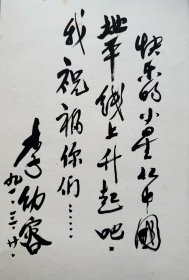 快乐的小星从中國
地平线上升起吧。
我祝福你们……
李幼容
九〇.三.廿.